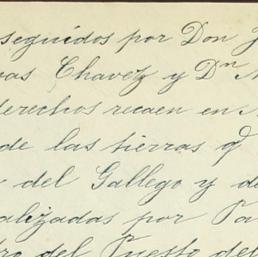 seguidos por Don J
vas Chavez y Dⁿ
derechos recaen en
de las tierras q̃
del Gallego y de
alizadas por Pa
ro del Puesto del